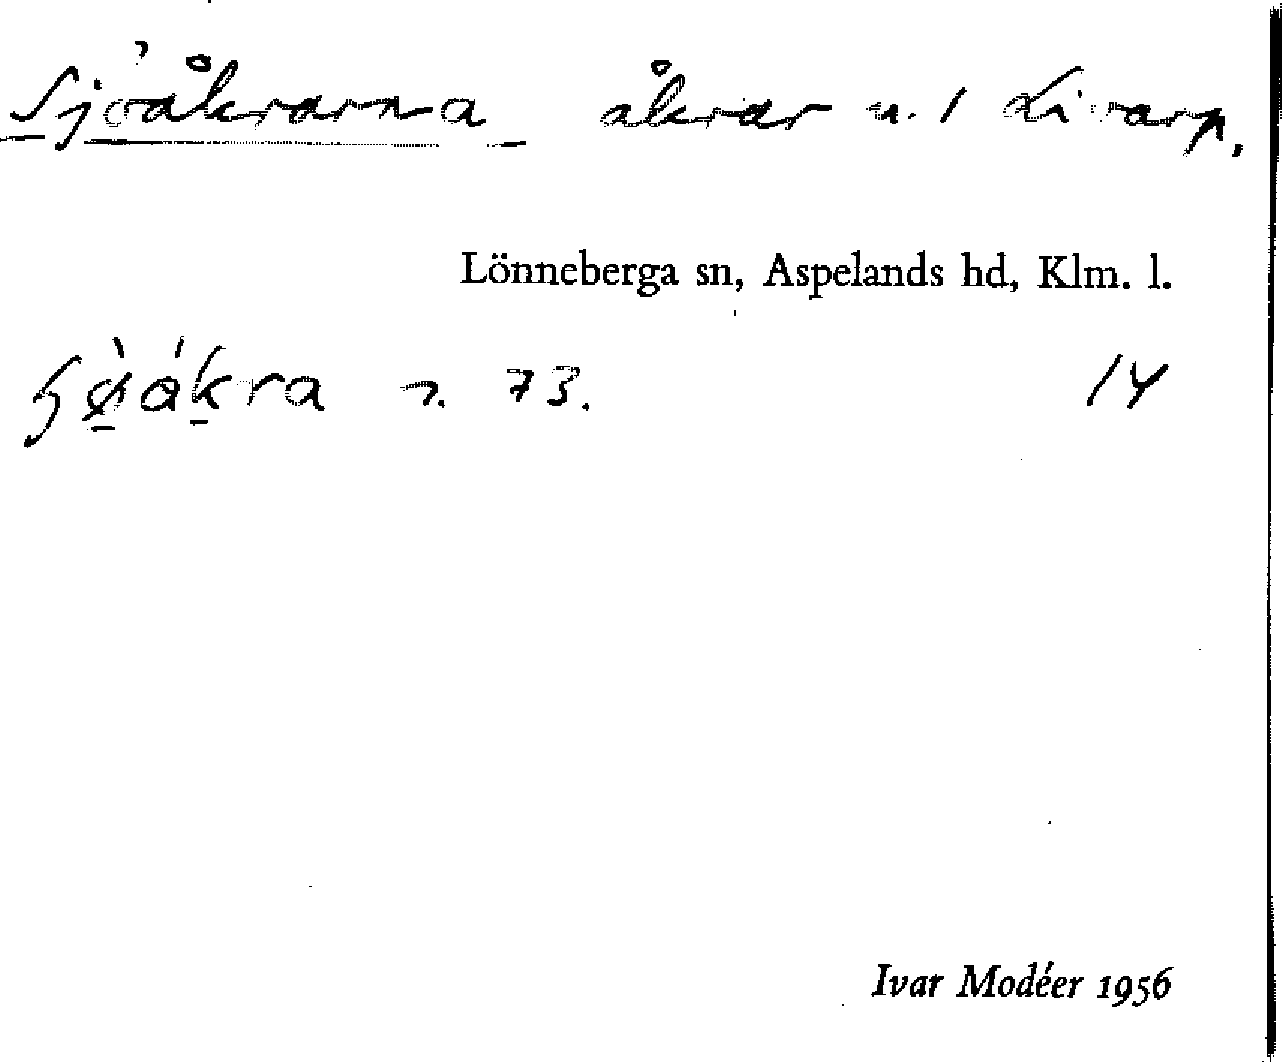 Sjöåkrarna åkrar u. 1 Livarp.
Lönneberga sn, Aspelands hd, Klm. l.
n. 73. 14
Ivar Modéer 1956